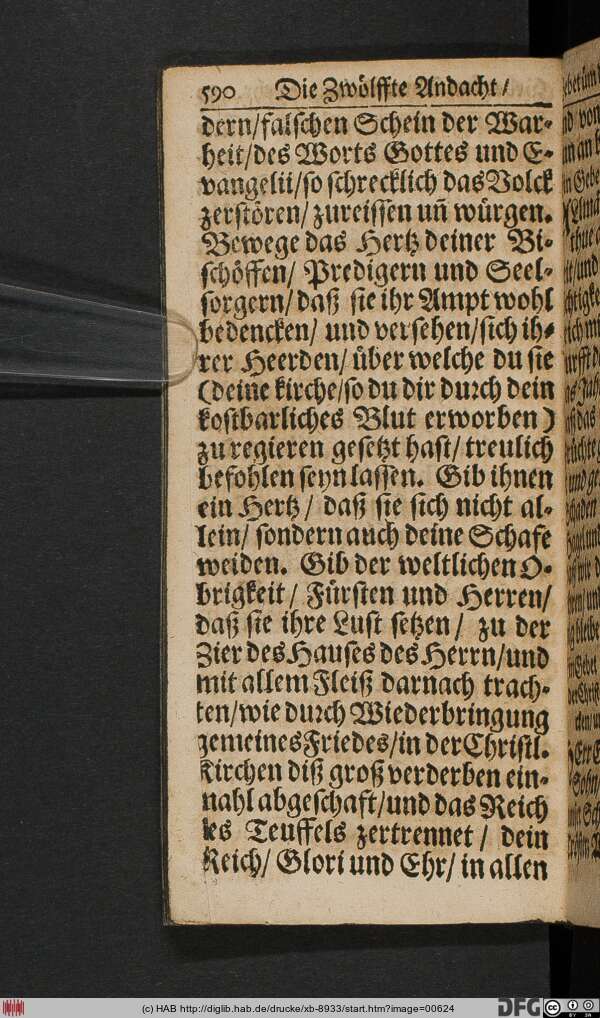 590 Die Zwölffte Andacht /
dern/falschen Schein der War-
heit/des Worts Gottes und E-
vangelii/so schrecklich das Volck
zerstören/zureissen uñ würgen.
Bewege das Hertz deiner Bi-
schöffen/ Predigern und Seel-
sorgern/daß sie ihr Ampt wohl
bedencken/ und versehen/sich ih-
rer Heerden/ über welche du sie
(deine kirche/so du dir durch dein
kostbarliches Blut erworben)
zu regieren gesetzt hast/ treulich
befohlen seyn lassen. Gib ihnen
ein Hertz / daß sie sich nicht al-
lein/ sondern auch deine Schafe
weiden. Gib der weltlichen O-
brigkeit / Fürsten und Herren/
daß sie ihre Lust setzen / zu der
Zier des Hauses des Herrn/und
mit allem Fleiß darnach trach-
ten/wie durch Wiederbringung
gemeines Friedes/in der Christl.
Kirchen diß groß verderben ein-
nahl abgeschaft/und das Reich
des Teuffels zertrennet / dein
Reich/ Glori und Ehr/ in allen
(c) HAB http://diglib.hab.de/drucke/xb-8933/start.htm?image=00624
DFG